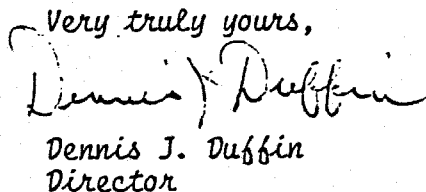 Very truly yours,
Dennis J Duffin
Dennis J. Duffin
Director